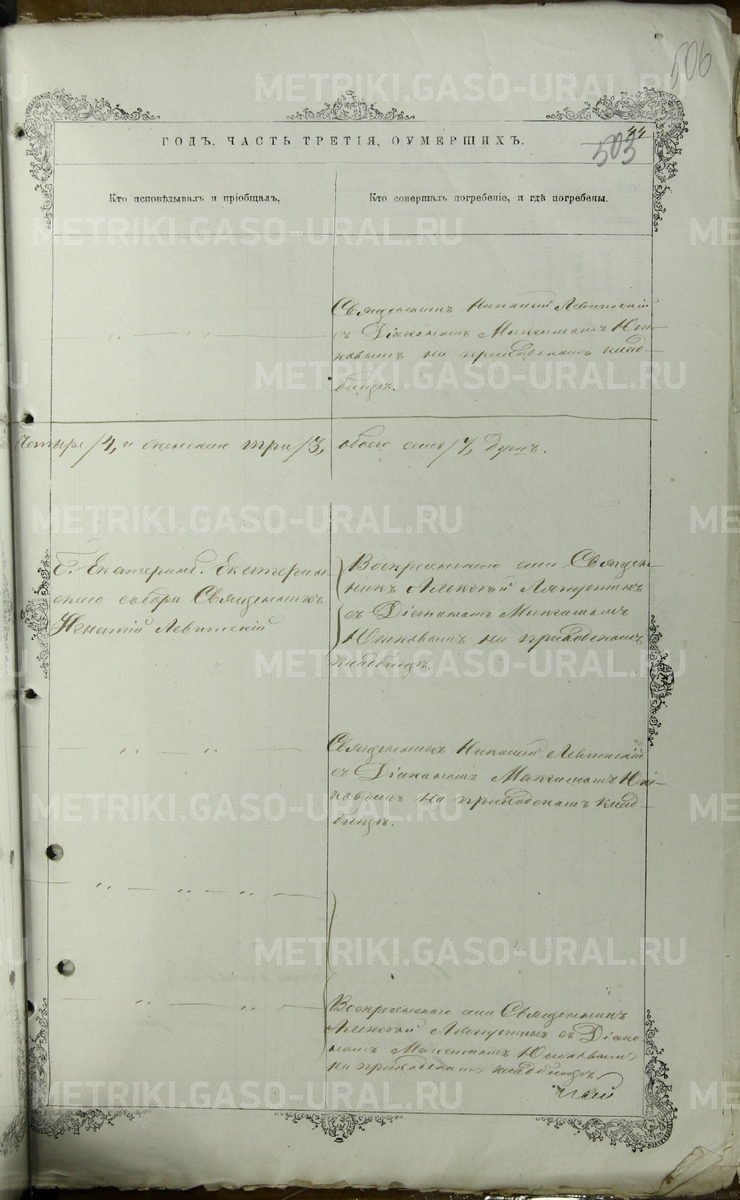 506
44
503
ГОДЪ, ЧАСТЬ ТРЕТІЯ, О УМЕРШИХЪ.
Кто исповѣдывалъ и пріобщалъ,
Кто совершалъ погребеніе, и гдѣ погребены.
Священникъ Левитскій
съ Діакономъ Максимомъ Юш-
ковымъ на приходскомъ клад-
бищѣ.
четыре /4, и женска три /3, обоего семь /7, душъ.
Екатерин
собора Священникъ
Игнатій Левитскій
Воскресенской Священ-
никъ Алексѣй
съ Діакономъ Максимомъ
Юшковымъ на приходскомъ
кладбищѣ.
Священникъ Левитскій
съ Діакономъ Максимомъ Юш-
ковымъ на приходскомъ клад-
бищѣ.
Священникъ
Алексѣй съ Діако-
номъ Максимомъ Юшковымъ
на приходскомъ кладбищѣ.
METRIKI.GASO-URAL.RU